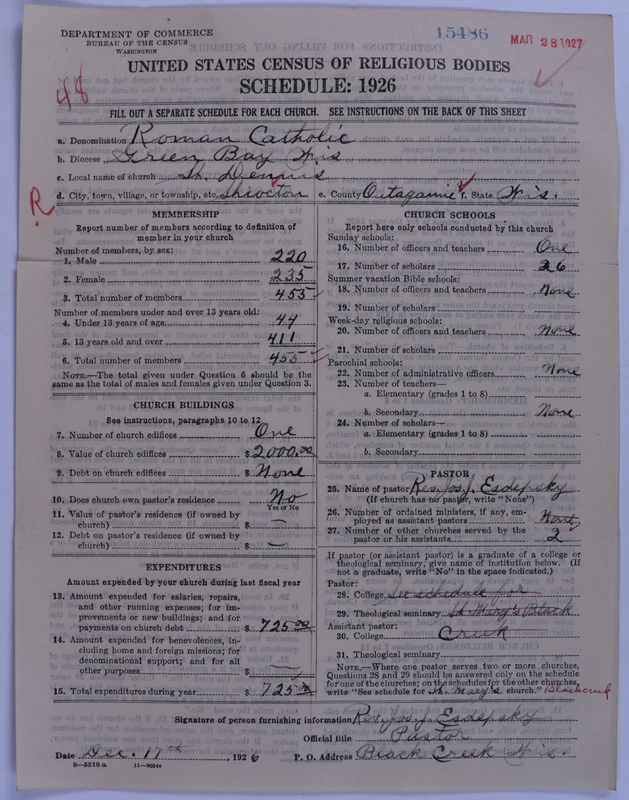 DEPARTMENT OF COMMERCE
BUREAU OF THE CENSUS
WASHINGTON
15486
MAR 28 1927
UNITED STATES CENSUS OF RELIGIOUS BODIES
SCHEDULE: 1926
48
FILL OUT A SEPARATE SCHEDULE FOR EACH CHURCH. SEE INSTRUCTIONS ON THE BACK OF THIS SHEET
a. Denomination Roman Catholic
b. Diocese Green Bay Wis
c. Local name of church St. Dennis
d. City, town, village, or township, etc. Shiocton e. County Outagamie f. State Wis.
R
MEMBERSHIP
Report number of members according to definition of
member in your church
Number of members, by sex:
1. Male 220
2. Female 235
3. Total number of members 455
Number of members under and over 13 years old:
4. Under 13 years of age 44
5. 13 years old and over 411
6. Total number of members 455
NOTE.—The total given under Question 6 should be the
same as the total of males and females given under Question 3.
CHURCH BUILDINGS
See instructions, paragraphs 10 to 12
7. Number of church edifices One
8. Value of church edifices $ 2000.00
9. Debt on church edifices $ None
10. Does church own pastor's residence No
Yes or No
11. Value of pastor's residence (if owned by
church) $ —
12. Debt on pastor's residence (if owned by
church) $ —
EXPENDITURES
Amount expended by your church during last fiscal year
13. Amount expended for salaries, repairs,
and other running expenses; for im-
provements or new buildings; and for
payments on church debt $ 725.00
14. Amount expended for benevolences, in-
cluding home and foreign missions; for
denominational support; and for all
other purposes $ —
15. Total expenditures during year $ 725.00
CHURCH SCHOOLS
Report here only schools conducted by this church
Sunday schools:
16. Number of officers and teachers One
17. Number of scholars 26
Summer vacation Bible schools:
18. Number of officers and teachers None
19. Number of scholars
Week-day religious schools:
20. Number of officers and teachers None
21. Number of scholars
Parochial schools:
22. Number of administrative officers None
23. Number of teachers—
a. Elementary (grades 1 to 8)
b. Secondary None
24. Number of scholars—
a. Elementary (grades 1 to 8)
b. Secondary
PASTOR
25. Name of pastor Rev. Jos. Esdepsky
(If church has no pastor, write "None")
26. Number of ordained ministers, if any, em-
ployed as assistant pastors None
27. Number of other churches served by the
pastor or his assistants 2
If pastor (or assistant pastor) is a graduate of a college or
theological seminary, give name of institution below. (If
not a graduate, write "No" in the space indicated.)
Pastor:
28. College See schedule for
29. Theological seminary St. Mary's Black
Assistant pastor:
30. College Creek
31. Theological seminary
NOTE.—Where one pastor serves two or more churches,
Questions 28 and 29 should be answered only on the schedule
for one of the churches; on the schedules for the other churches,
write "See schedule for St. Mary's church." Black creek
Signature of person furnishing information Rev. Jos. Esdepsky
Official title Pastor
Date Dec. 17th, 1926 P. O. Address Black Creek Wis.
8—5518 a 11—9054